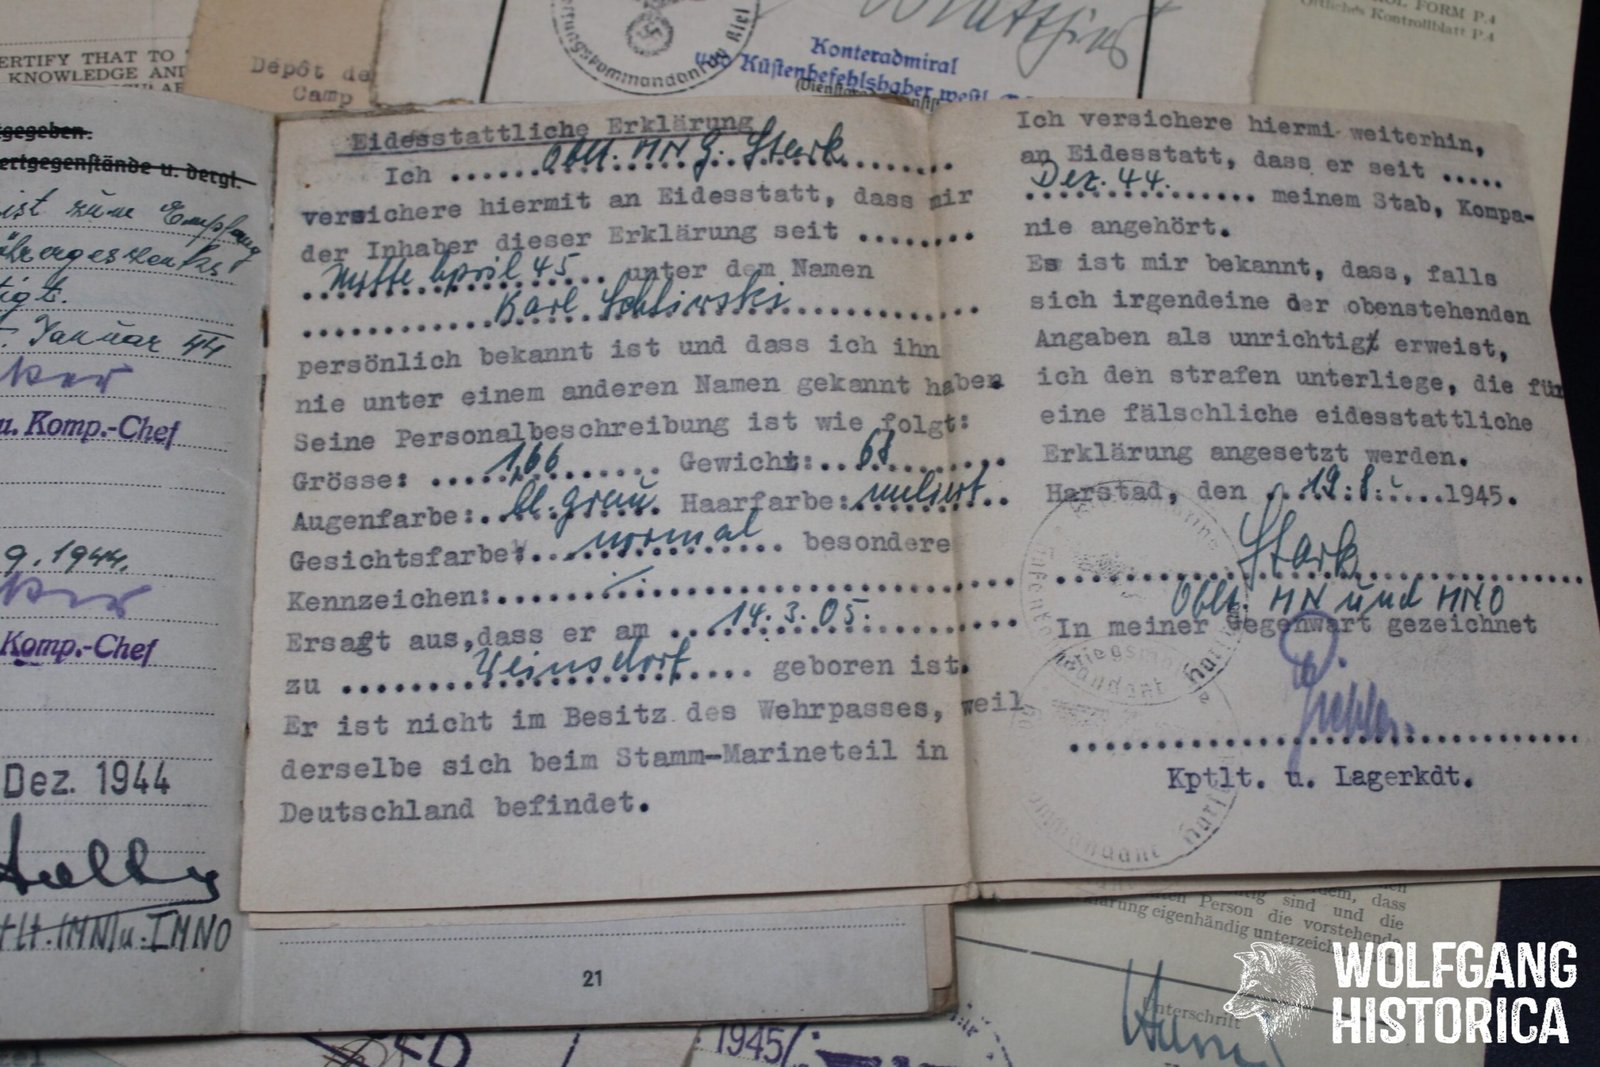 ERTIFY THAT TO
KNOWLEDGE AND
Dépôt de
Camp
Konteradmiral
Küstenbefehlshaber westl.
FORM P.4
Örtliches Kontrollblatt P.4
gegeben.
ertgegenstände u. dergl.
ist zum Empfang
tigt.
Januar 44
u. Komp.-Chef
9.1944.
Komp.-Chef
Dez. 1944
Eidesstattliche Erklärung
Ich ..... Oblt. MN G. Stark .....
versichere hiermit an Eidesstatt, dass mir
der Inhaber dieser Erklärung seit ........
Mitte April 45 ... unter dem Namen
Karl
persönlich bekannt ist und dass ich ihn
nie unter einem anderen Namen gekannt haben
Seine Personalbeschreibung ist wie folgt:
Grösse: ...1,66...... Gewicht:..68........
Augenfarbe:..bl.grau. Haarfarbe:.meliert..
Gesichtsfarbe:...normal..... besondere
Kennzeichen:.........................
Ersagt aus,dass er am ...14.3.05.........
zu ................. geboren ist.
Er ist nicht im Besitz des Wehrpasses, weil
derselbe sich beim Stamm-Marineteil in
Deutschland befindet.
Ich versichere hiermi weiterhin,
an Eidesstatt, dass er seit .....
Dez. 44. ............ meinem Stab, Kompa-
nie angehört.
Es ist mir bekannt, dass, falls
sich irgendeine der obenstehenden
Angaben als unrichtigt erweist,
ich den strafen unterliege, die für
eine fälschliche eidesstattliche
Erklärung angesetzt werden.
Harstad, den ..19.8......1945.
Stark
Oblt. MN und MNO
In meiner Gegenwart gezeichnet
Kptlt. u. Lagerkdt.
21
1945
dass
sind und die
Person die vorstehende
eigenhändig unterzeich
Unterschrift
WOLFGANG
HISTORICA